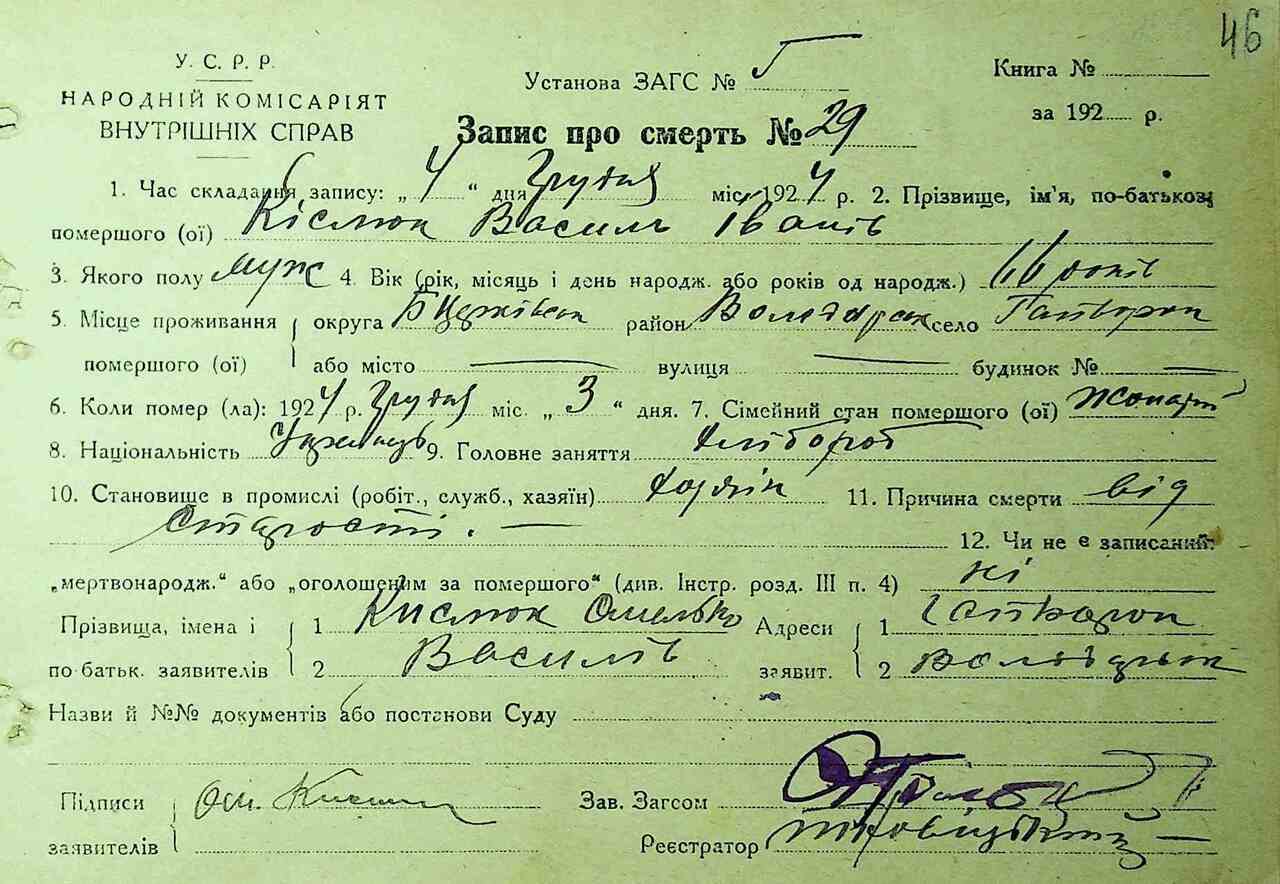 46
У. С. Р. Р.
НАРОДНІЙ КОМІСАРІЯТ
ВНУТРІШНІХ СПРАВ
Установа ЗАГС №
Книга №
за 192 р.
Запис про смерть № 29
1. Час складання запису: „ 4 “ дня Грудня міс. 1924 р. 2. Прізвище, ім'я, по-батькові
помершого (ої) Кіслюк Василь Іванів
3. Якого полу муж 4. Вік (рік, місяць і день народж. або років од народж.) 66 років
5. Місце проживання округа Б Церківськ район Володарськ село Гайворон
помершого (ої) або місто — вулиця — будинок № —
6. Коли помер (ла): 1924 р. Грудня міс. „ 3 “ дня. 7. Сімейний стан помершого (ої) жонатий
8. Національність Українець 9. Головне заняття хлібороб
10. Становище в промислі (робіт., служб., хазяїн) хазяїн 11. Причина смерти від
старости. — 12. Чи не є записаний:
„мертвонародж.“ або „оголошеним за помершого“ (див. Інстр. розд. III п. 4) ні
Прізвища, імена і 1 Кислюк Омелько Адреси 1 Гайворон
по батьк. заявителів 2 Василів заявит. 2 Володарськ
Назви й №№ документів або постанови Суду
Підписи Ом. Кислюк Зав. Загсом
заявителів Реєстратор